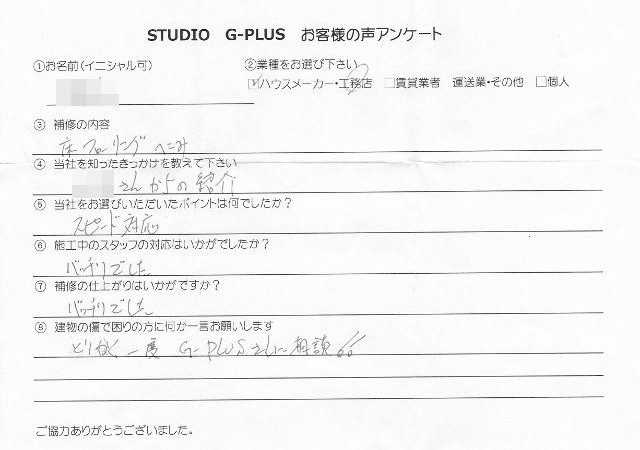 STUDIO G-PLUS お客様の声アンケート
①お名前(イニシャル可) ②業種をお選び下さい
☑ハウスメーカー・工務店 □賃貸業者 運送業・その他 □個人
③ 補修の内容
床フローリング へこみ
④ 当社を知ったきっかけを教えて下さい
さんからの紹介
⑤ 当社をお選びいただいたポイントは何でしたか?
スピード対応
⑥ 施工中のスタッフの対応はいかがでしたか?
バッチリでした
⑦ 補修の仕上がりはいかがですか?
バッチリでした
⑧ 建物の傷で困りの方に何か一言お願いします
とりあえず一度 G-PLUSさんに相談!!
ご協力ありがとうございました。